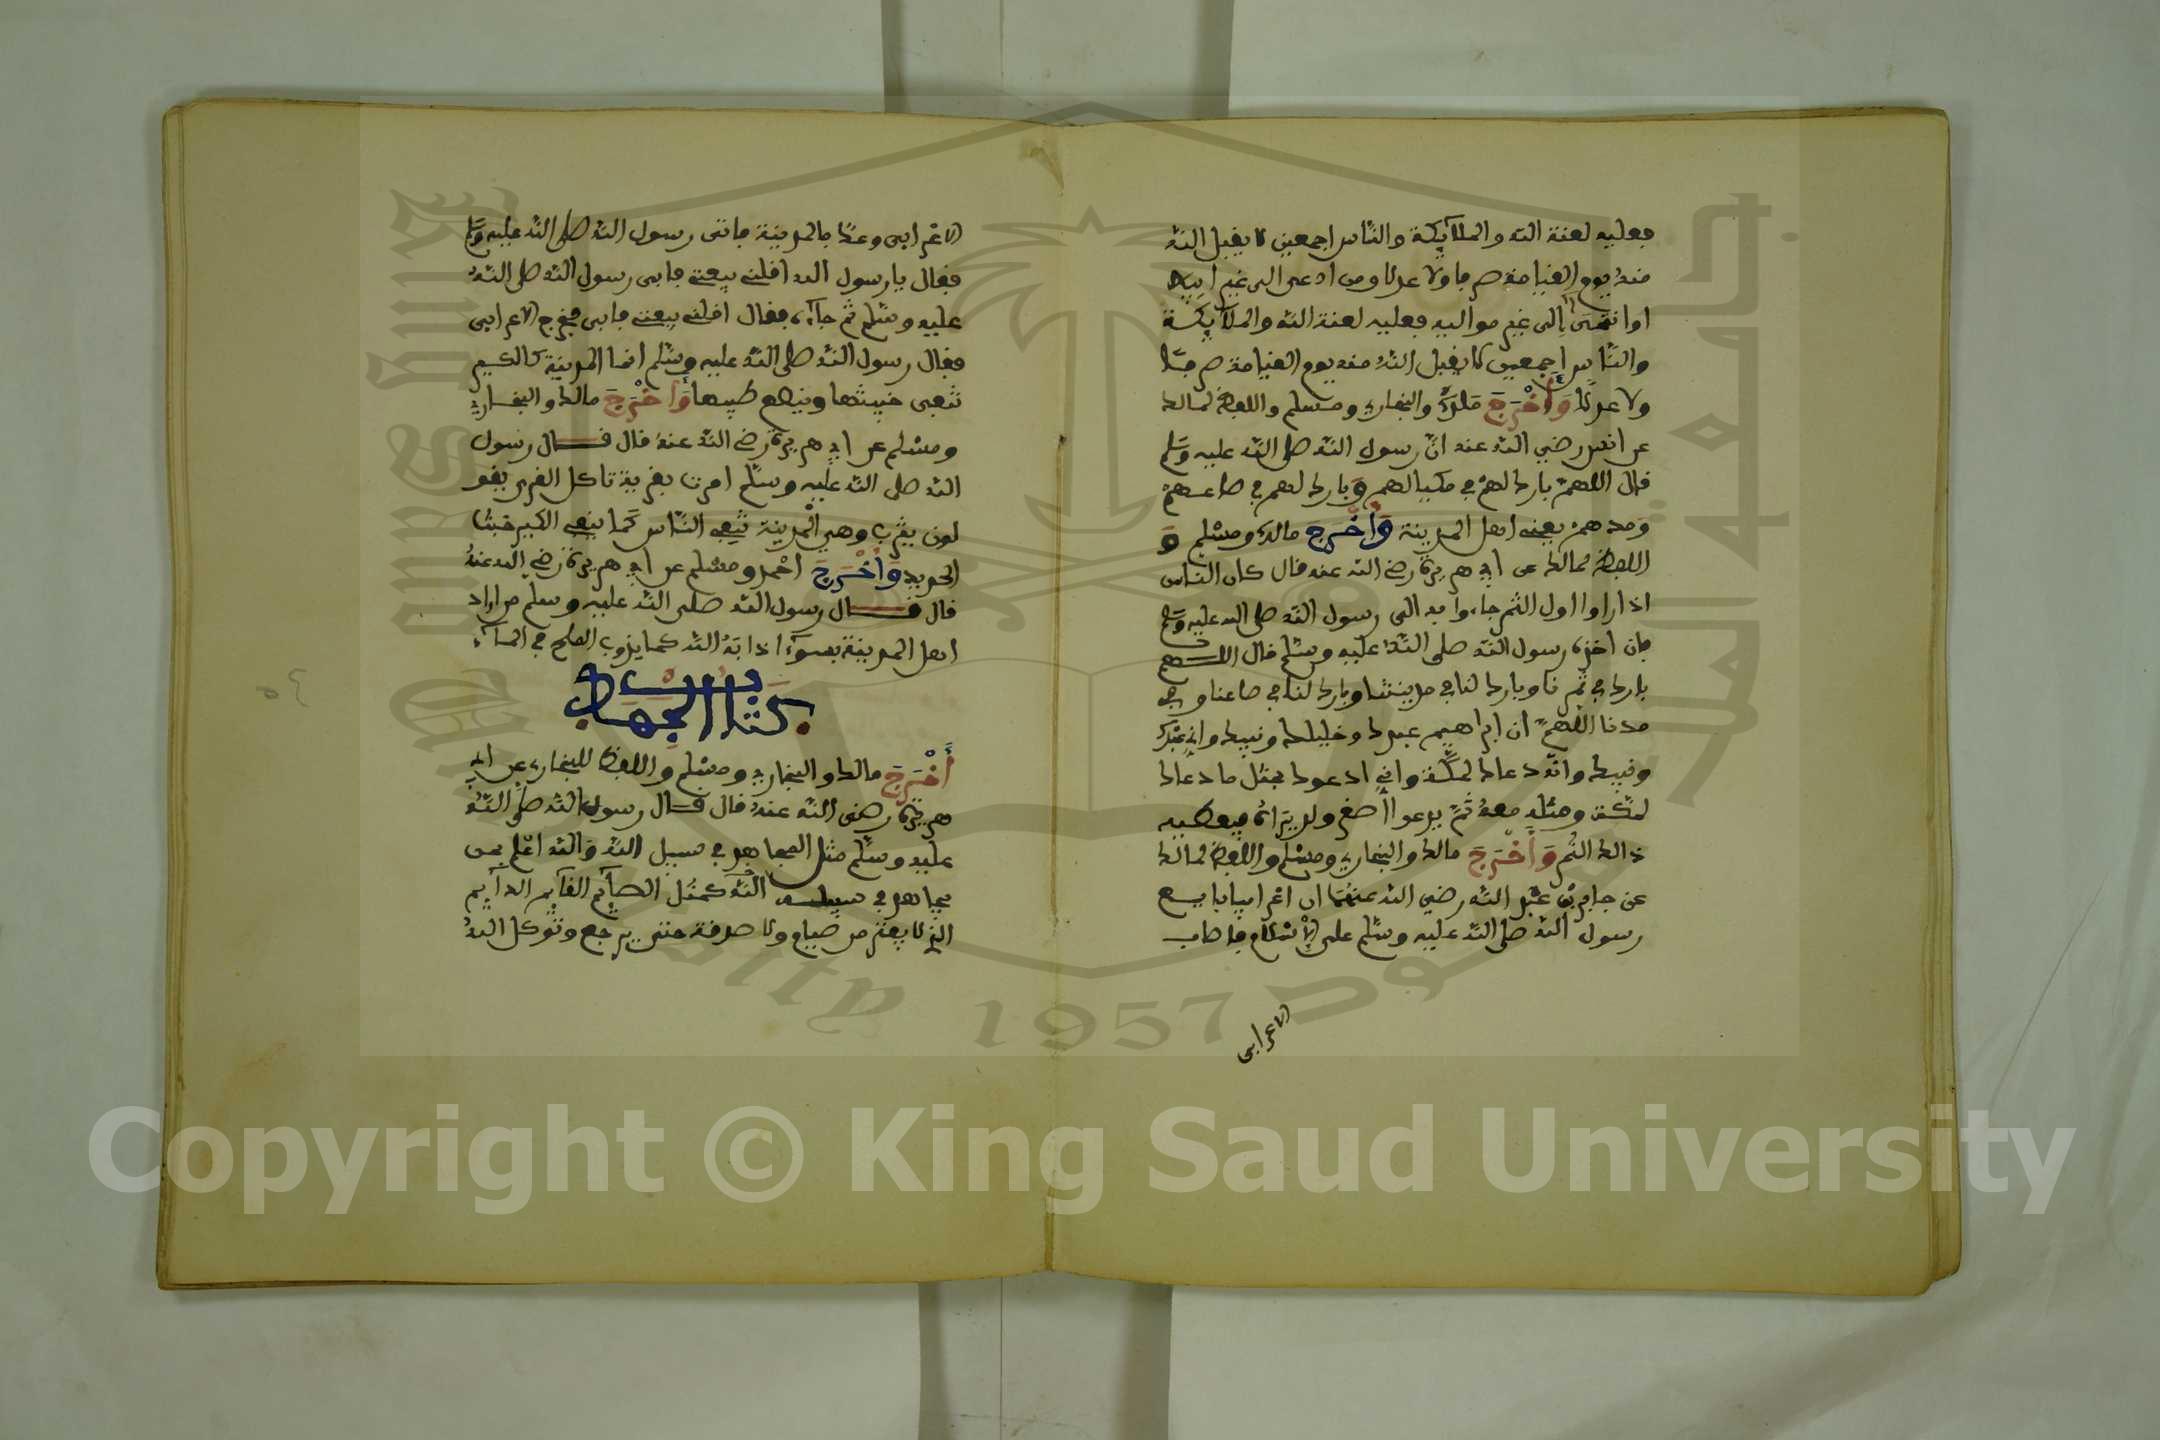 فعليه لعنة الله والملآيكة والناس اجمعين لا يقبل الله
منه يوم القيامة صرفا ولا عدلا ومن ادعى الى غير ابيه
او انتمى إلى غير مواليه فعليه لعنة الله والملآيكة
والناس اجمعين لا يقبل الله منه يوم القيامة صرفا
ولا عدلا وأخرج ملك والبخاري ومسلم واللفظ لمالك
عن انس رضي الله عنه انّ رسول الله صلى الله عليه وسلم
قال اللهم بارك لهم في مكيالهم وبارك لهم في صاعهم
ومدهم يعني اهل المدينة وأخرج مالك ومسلم و
اللفظ لمالك عن ابي هريرة رضي الله عنه قال كان الناس
اذا راوا اول الثمر جاءوا به الى رسول الله صلى الله عليه وسلم
فان اخذه رسول الله صلى الله عليه وسلم قال اللهم
بارك في ثمرنا وبارك لنا في مدينتنا وبارك لنا في صاعنا وفي
مدنا اللهم ان ابراهيم عبدك وخليلك ونبيك واني عبدك
ونبيك وانه دعاك لمكة واني ادعوك بمثل ما دعاك
لمكة ومثله معه ثم يدعوا اصغر وليد يراه فيعطيه
ذالك الثمر وأخرج مالك والبخاري ومسلم واللفظ لمالك
عن جابر بن عبد الله رضي الله عنهما ان اعرابيا بايع
رسول الله صلى الله عليه وسلم على الاسلام فاصاب
الاعرابي
الاعرابى وعك بالمدينة فاتى رسول الله صلى الله عليه وسلم
فقال يا رسول الله اقلني بيعتي فابى رسول الله صلى الله
عليه وسلم ثم جآءه فقال اقلني بيعتي فابى فخرج الاعرابى
فقال رسول الله صلى الله عليه وسلم انما المدينة كالكير
تنفى خبيثها وينصع طيبها وأخرج مالك والبخاري
ومسلم عن ابي هريرة رضي الله عنه قال قال رسول
الله صلى الله عليه وسلم امرت بقرية تاكل القرى يقو
لون يثرب وهي المدينة تنفي الناس كما ينفي الكير خبث
الحديد وأخرج احمد ومسلم عن ابي هريرة رضي الله عنه
قال قال رسول الله صلى الله عليه وسلم من اراد
اهل المدينة بسوء اذابه الله كما يذوب الملح في المآء
كتاب الجهاد
أخرج مالك والبخاري ومسلم واللفظ للبخاري عن ابي
هريرة رضى الله عنه قال قال رسول الله صلى الله
عليه وسلم مثل المجاهد في سبيل الله والله اعلم بمن
يجاهد في سبيله الله كمثل الصآئم القآيم الدآيم
الذي لا يفتر من صيام ولا صدقة حتى يرجع وتوكل الله
٥٤
جامعة الملك سعود
King Saud University 1957
Copyright © King Saud University